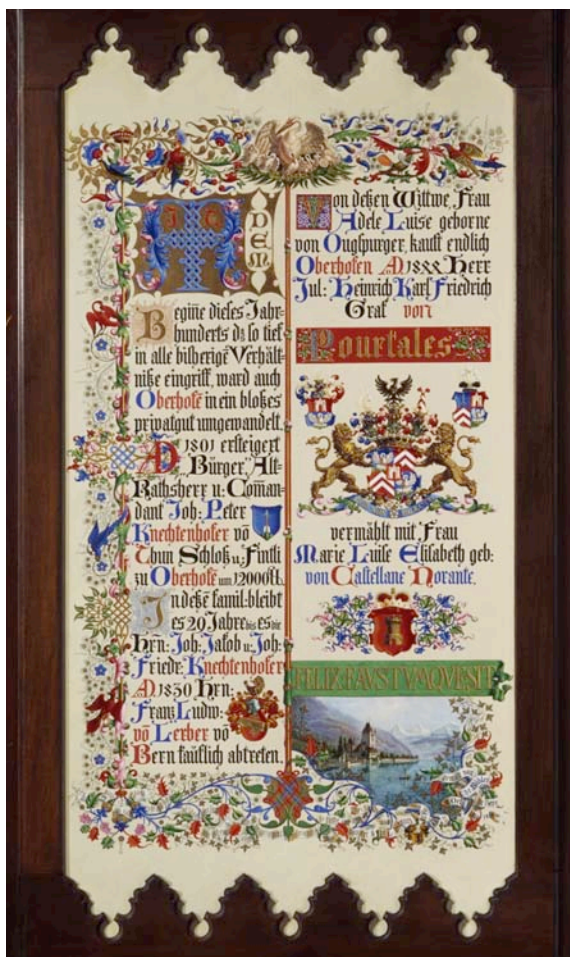 DEM
Begiñe dieses Jahr-
hunderts dz so tief
in alle bisherige Verhält-
niße eingriff, ward auch
Oberhofē in ein bloßes
privatgut umgewandelt.
A 1801 ersteigert
Bürger, Alt-
Rathsherr u: Com̄an-
dant Joh: Peter
Knechtenhofer vō
Thun Schloß u:
zu Oberhofē um 12000
In deßē famil: bleibt
es 20 Jahre bis es die
Hrn: Joh: Jakob u: Joh:
Friedr: Knechtenhofer
A 1830 Hrn:
Franz Ludw:
vō Lerber vō
Bern käuflich abtreten.
Von deßen Wittwe, Frau
Adele Luise geborne
von Ougspurger, kauft endlich
Oberhofen A 1844 Herr
Jul: Heinrich Karl Friedrich
Graf von
Pourtales
vermählt mit Frau
Marie Luise Elisabeth geb:
von Castellane Norante.
FELIX FAVSTVMQVE SIT